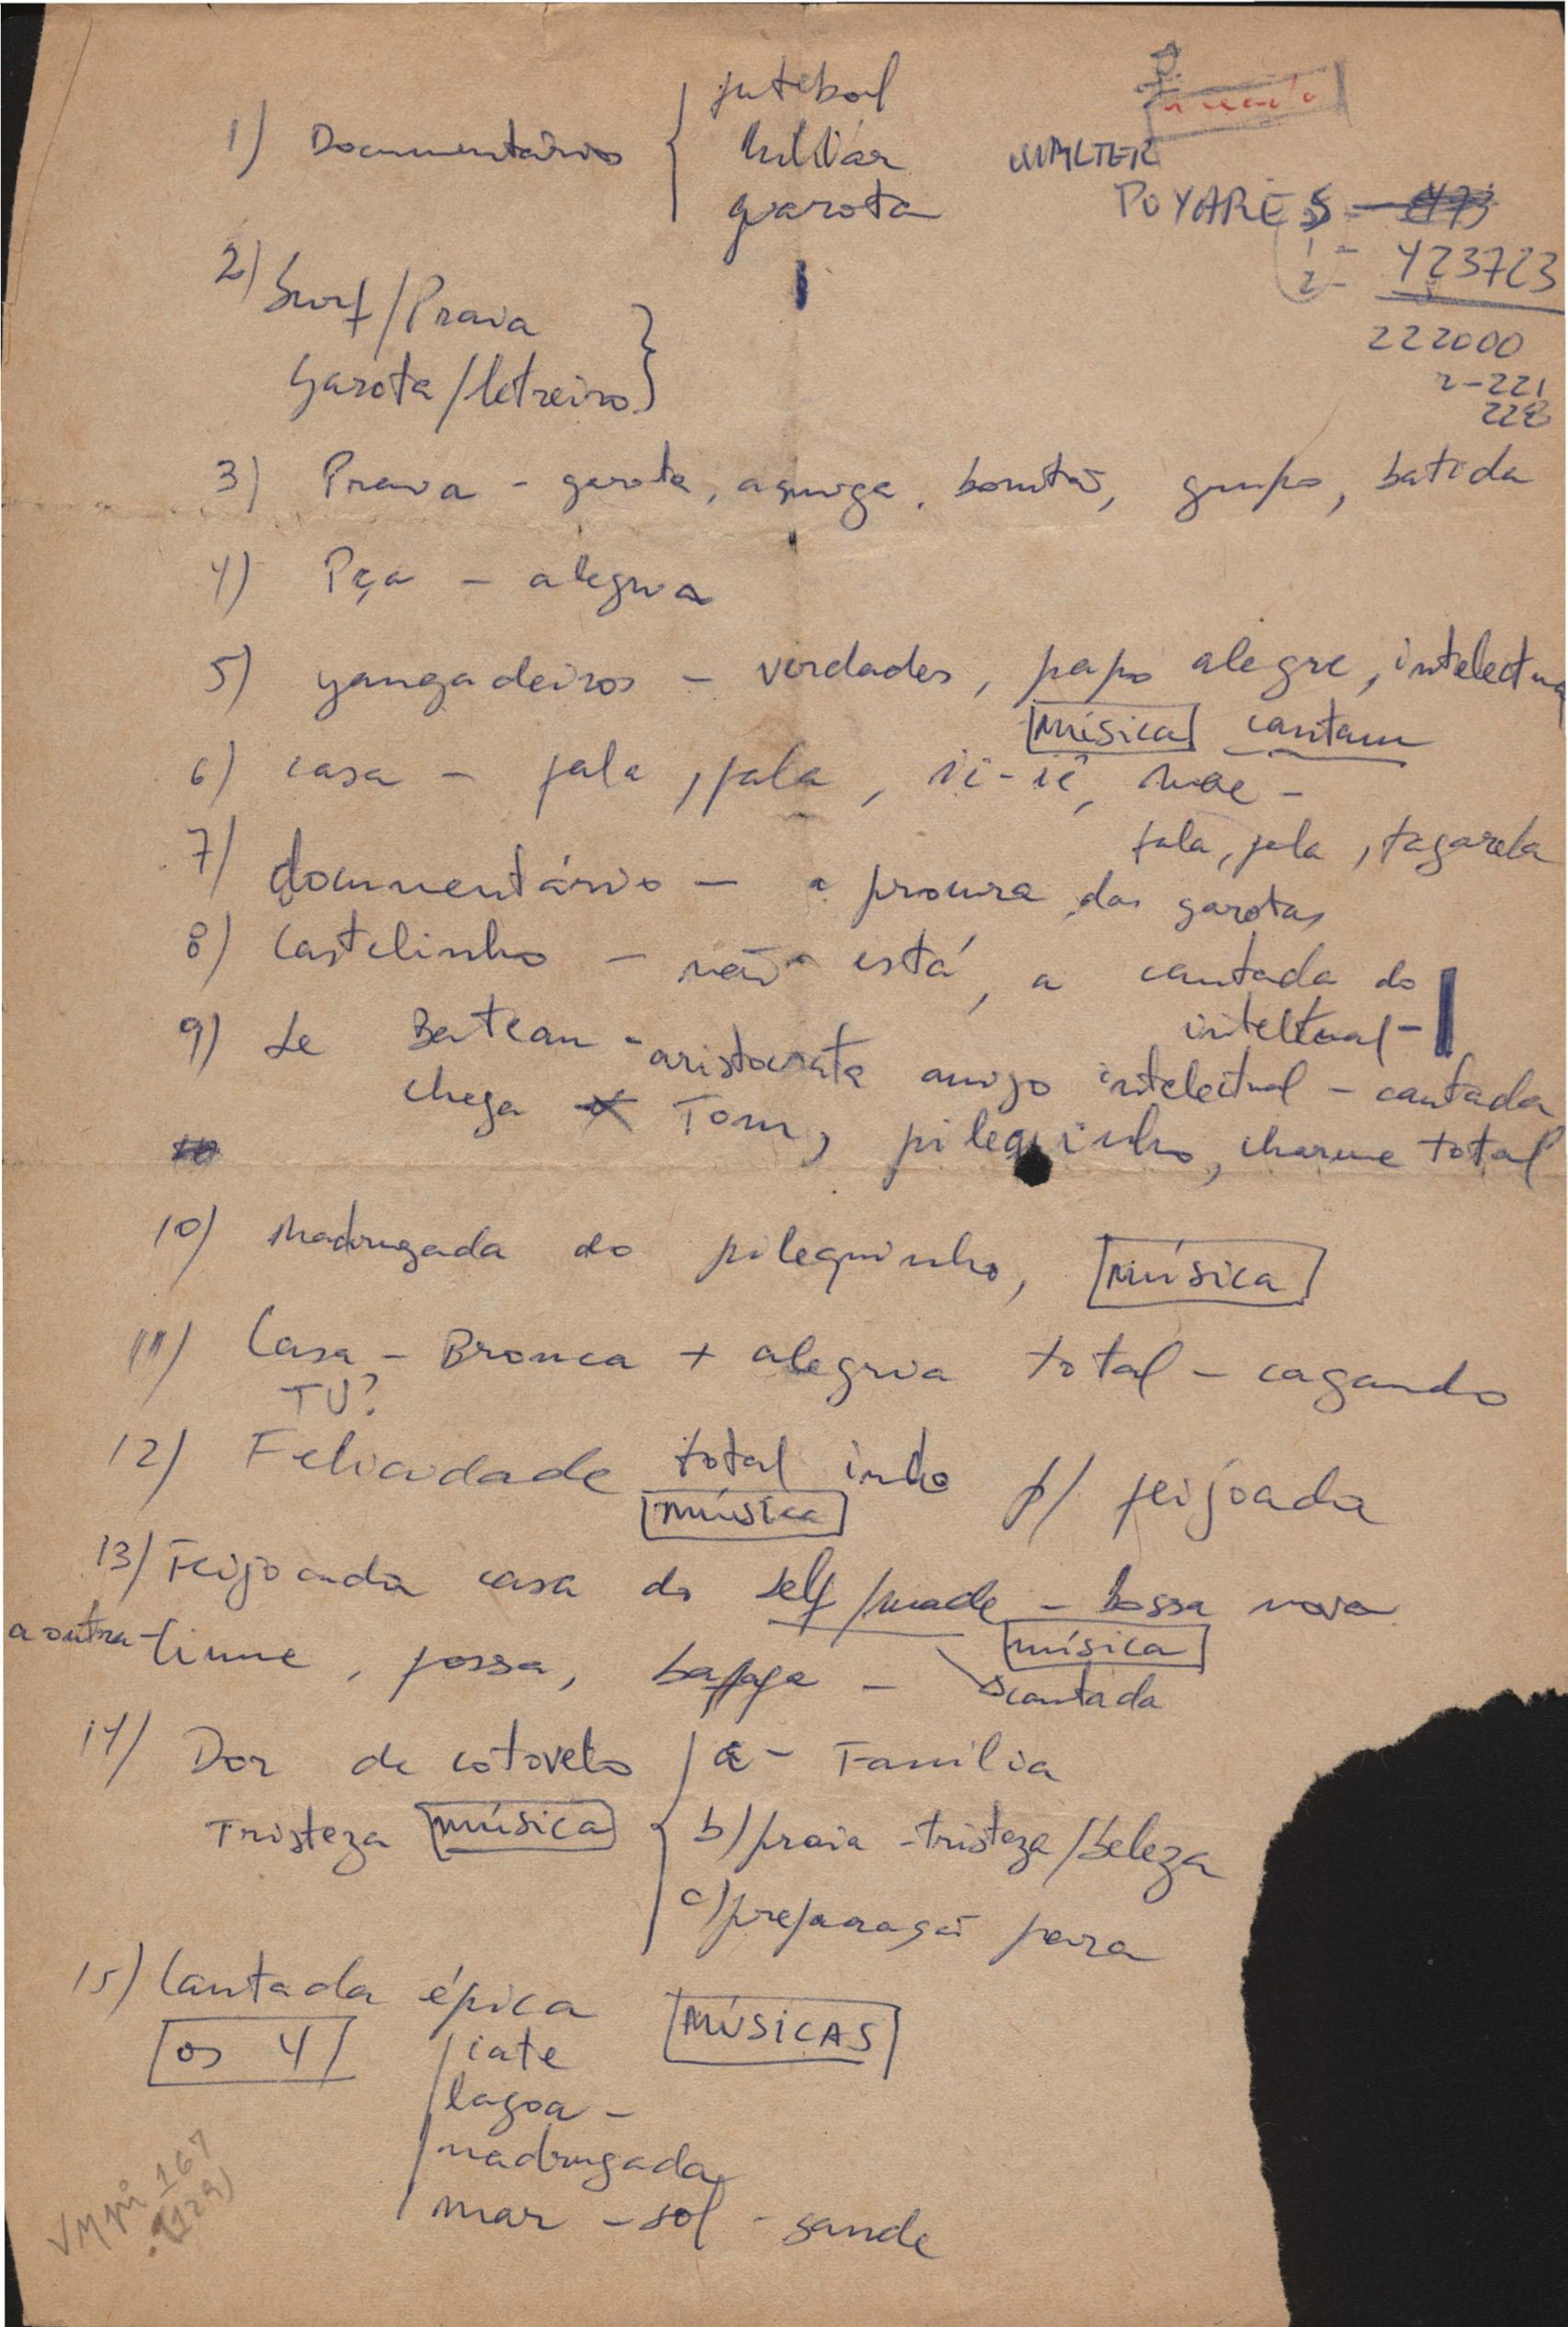 1) Documentário { futebol
bilhar
garota
WALTER
POYARES - 473
1 -
2 - 423723
222000
2-221
228
2) Surf/Praia
Garota/letreiro }
3) Praia - garota, amiga, bonitão, grupo, batida
4) Pça - alegria
5) yangadeiros - verdades, papo alegre, intelectua
música cantam
6) casa - fala, fala, iê-iê, mãe -
fala, fala, tagarela
7) documentário - a procura das garotas
8) Castelinho - não está, a cantada do
inteltual -
9) Le Bateau - aristocrata amigo intelectual - cantada
chega Tom, pilequinho, charme total
10) Madrugada do pilequinho, música
11) Casa - Bronca + alegria total - cagando
TU?
12) Felicidade total indo p/ feijoada
música
13) Feijoada casa do self/made - bossa nova
música
a outra - ciume, fossa, -
cantada
14) Dor de cotovelo { a - Família
Tristeza música b) praia - tristeza/beleza
c) preparaçã para
15) Cantada épica MÚSICAS
os 4 iate
lagoa -
madrugada
mar - sol - saude
VMpi 167
(129)